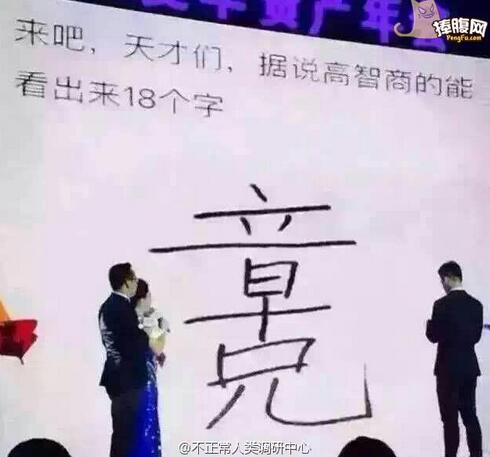 资产年会
捧腹网
PengFu.com
来吧，天才们，据说高智商的能
看出来18个字
@不正常人类调研中心